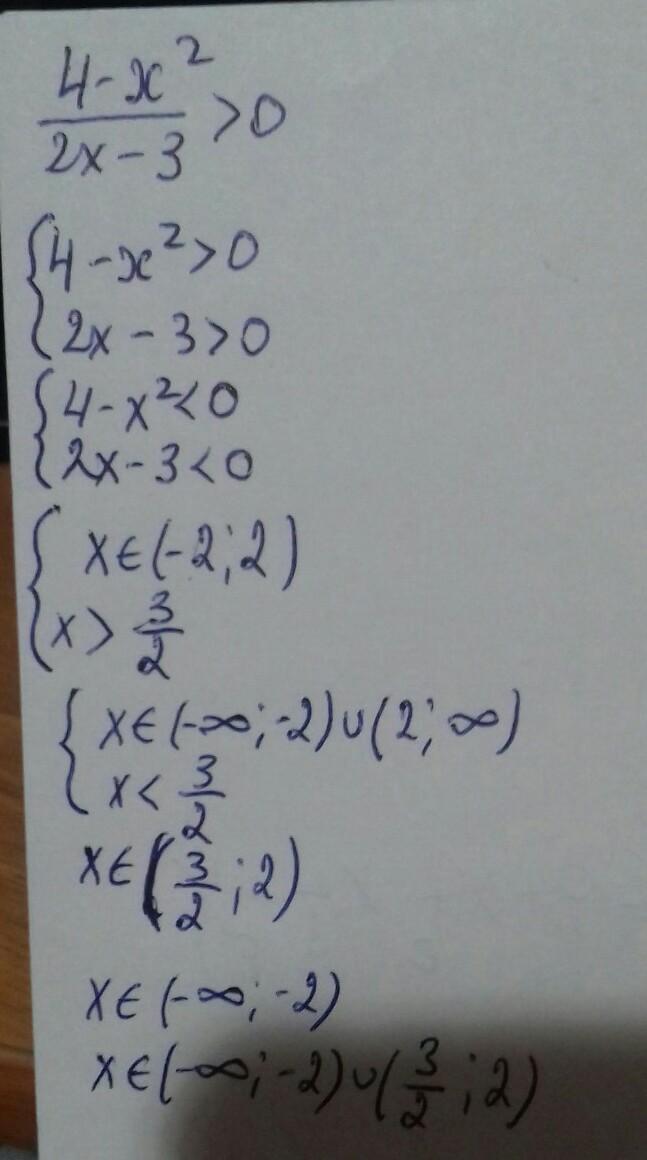 4-x² / 2x-3 >0
{4-x²>0
2x-3>0
{4-x²<0
2x-3<0
{x∈(-2;2)
x> 3/2
{x∈(-∞;-2)∪(2;∞)
x< 3/2
x∈(3/2;2)
x∈(-∞;-2)
x∈(-∞;-2)∪(3/2;2)